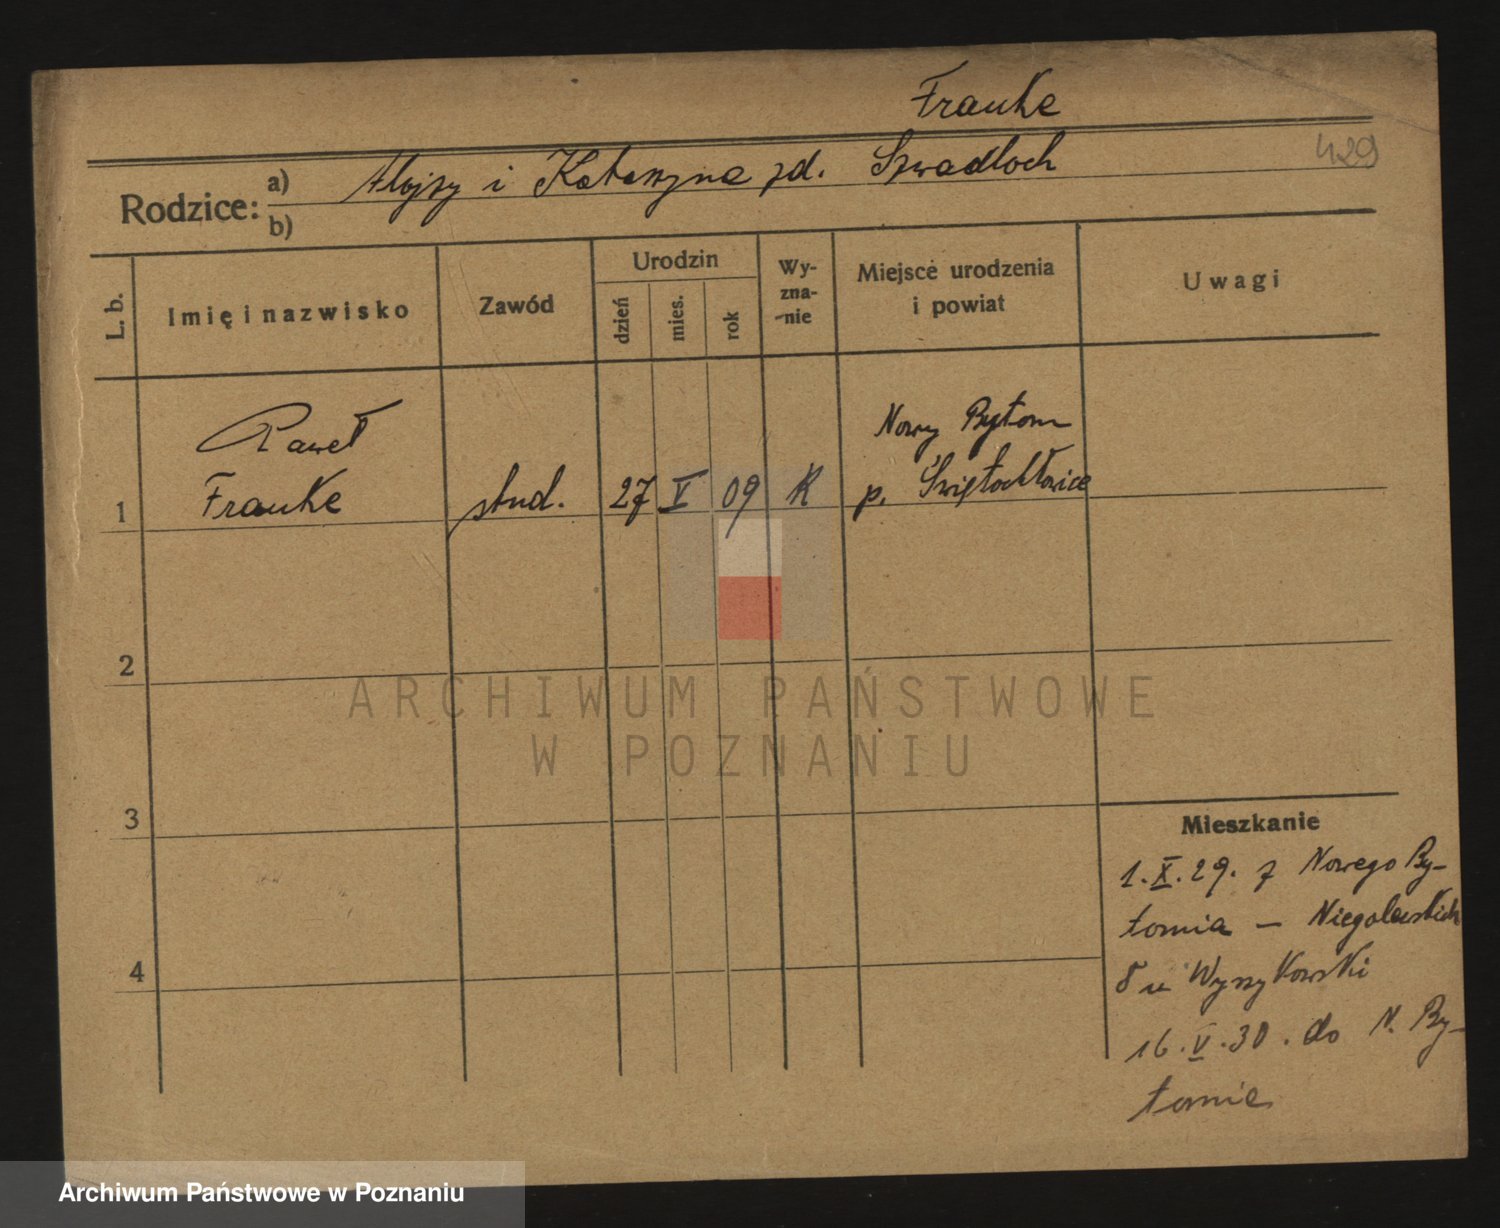 Franke
429
Rodzice: a) Alojzy i Katarzyna zd. Szwadloch
b)
L. b.
Imię i nazwisko
Zawód
Urodzin
dzień
mies.
rok
Wy-
zna-
nie
Miejsce urodzenia
i powiat
Uwagi
Paweł Nowy Bytom
1 Franke stud. 27 V 09 K p. Świętochłowice
2
ARCHIWUM PAŃSTWOWE
W POZNANIU
3
Mieszkanie
1.X.29. z Nowego By-
tomia – Niegolewskich
8 u Wyszykowski
4
16.V.30. do N. By-
tomia
Archiwum Państwowe w Poznaniu